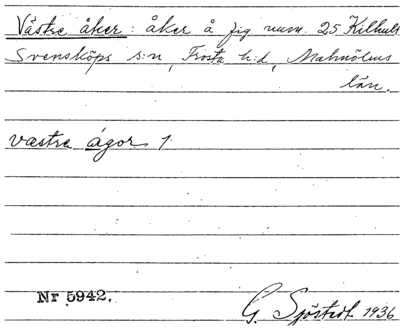 Västre åker : åker å fig num. 25 Kilhult
Svensköps s:n, Frosta h:d, Malmöhus
län.
västre ågor 1
Nr 5942.
G. Sjöstedt 1936